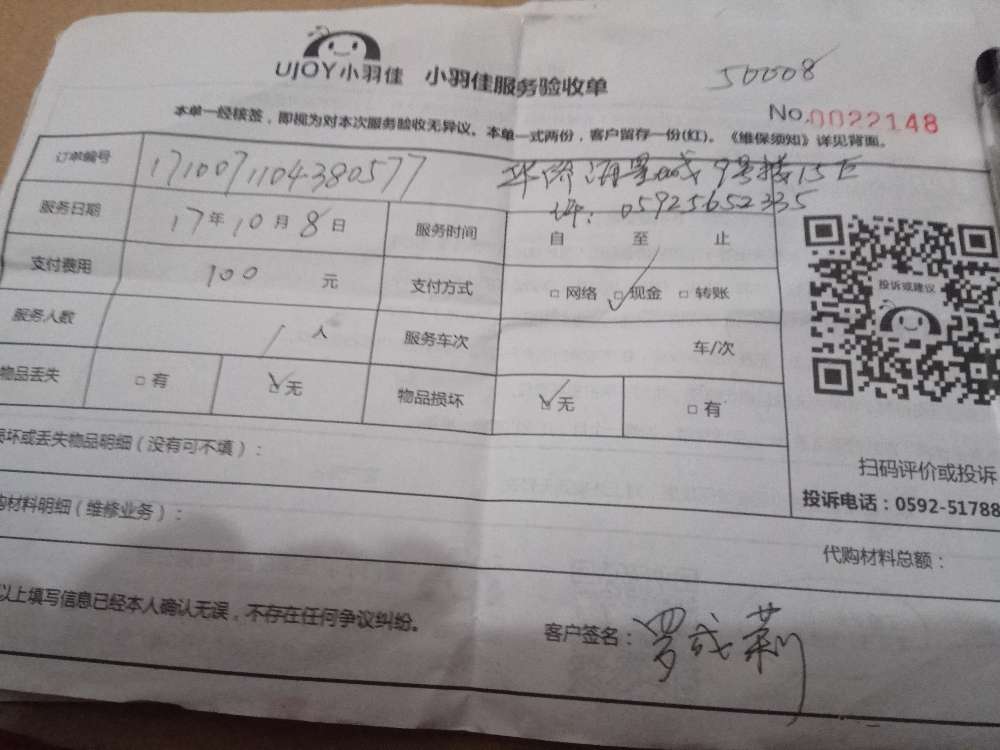 UJOY小羽佳 小羽佳服务验收单
50008
No.0022148
本单一经核签，即视为对本次服务验收无异议。本单一式两份，客户留存一份(红)。《维保须知》详见背面。
订单编号 1710071104380577 华侨海景城9号楼15E
05925652335
服务日期 17年10月8日 服务时间 自 至 止
支付费用 100 元 支付方式 □网络 ☑现金 □转账
投诉或建议
服务人数 1人 服务车次 车/次
物品丢失 □有 ☑无 物品损坏 ☑无 □有
坏或丢失物品明细（没有可不填）：
扫码评价或投诉
投诉电话：0592-51788
购材料明细（维修业务）：
代购材料总额：
以上填写信息已经本人确认无误，不存在任何争议纠纷。
客户签名：罗成莉